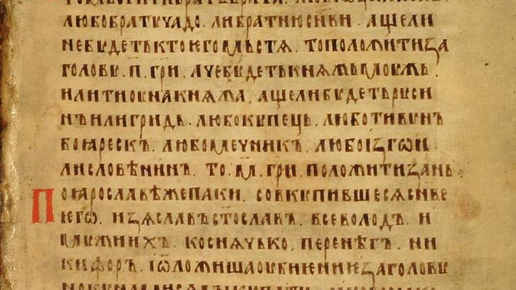 любобратоучадо . либратнюсн҃ви . ащели
небудетьктоиегомьстѧ . тоположитиза
голову . п҃ . гри . ачебудетькнѧжьмоужь
илитиоунакнѧжа . ащелибудетьруси
нъилигридь . любокупець . люботивун
боѧреск . любомечник . любоизгои
лисловѣнин . то . м҃ . гри . положитизань
поꙗрославѣжепаки . совкупившесѧсн҃ве
его . изѧславъ стослав . всеволодъ . и
мужиихъ . коснѧчько . перенѣгъ . ни
кифор . иѿложишаоубиениезаголову